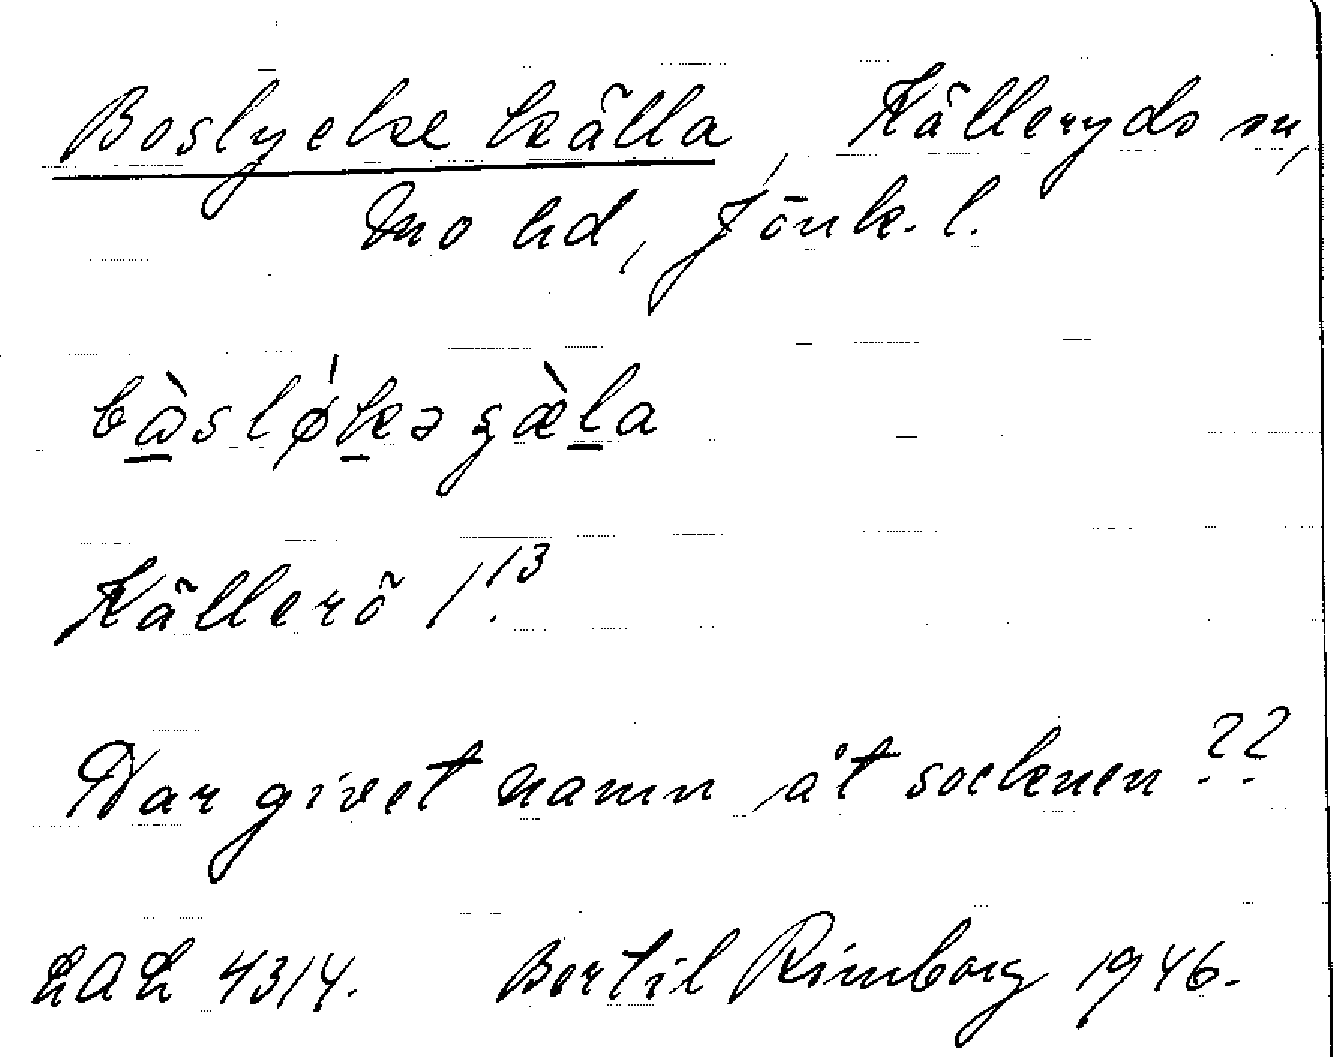 Boslycke källa, Källeryds sn,
Mo hd, Jönk. l.
bàsløkə ʂæ̀la
Källerö 1¹³
Har givet namn åt socknen ??
LAL 4314. Bertil Rimborg 1946.